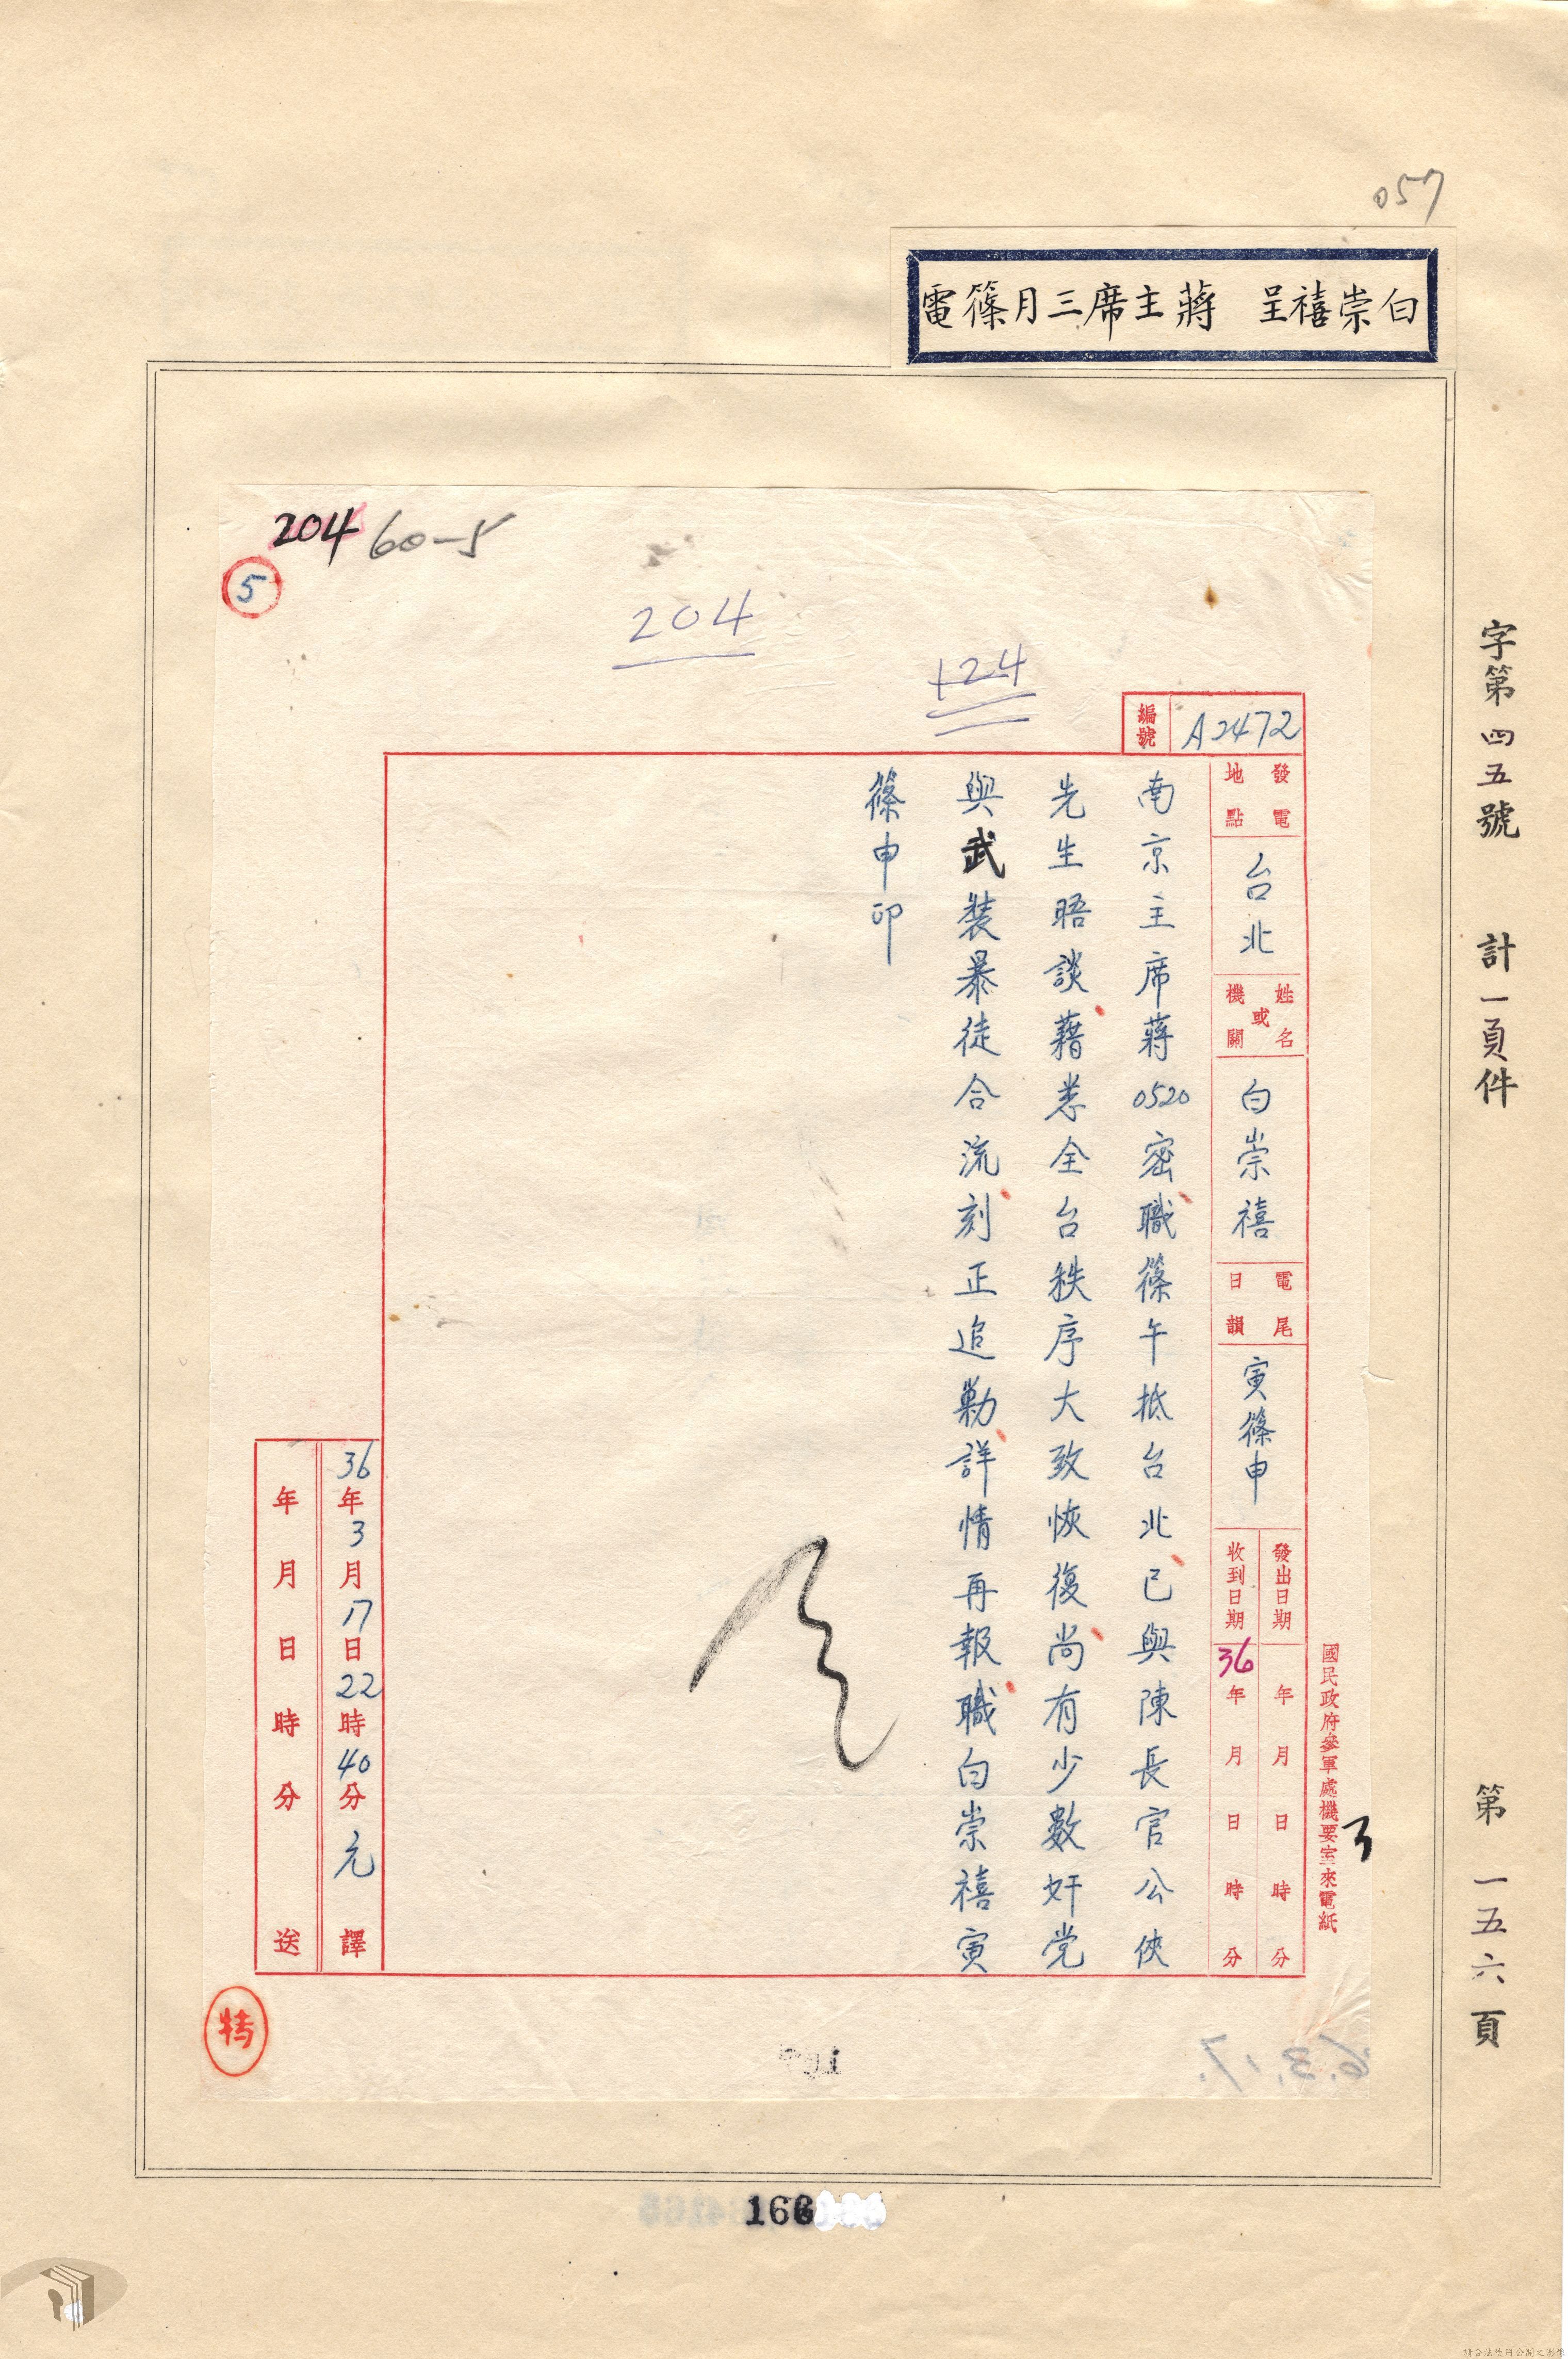 057
白崇禧呈 蔣主席三月篠電
字第四五號 計一頁件 第一五六頁
204 60-5
5
204
124
編號 A2472
發電地點 台北 姓名或機關 白崇禧 電尾日韻 寅篠申
發出日期 年月日時分
收到日期 36年月日時分
國民政府參軍處機要室來電紙
南京主席蔣0520密職篠午抵台北已與陳長官公俠
先生晤談藉悉全台秩序大致恢復尚有少數奸党
與武裝暴徒合流刻正追勦詳情再報職白崇禧寅
篠申印
36年3月17日22時40分元譯
年月日時分送
特
166
請合法使用公開之影像